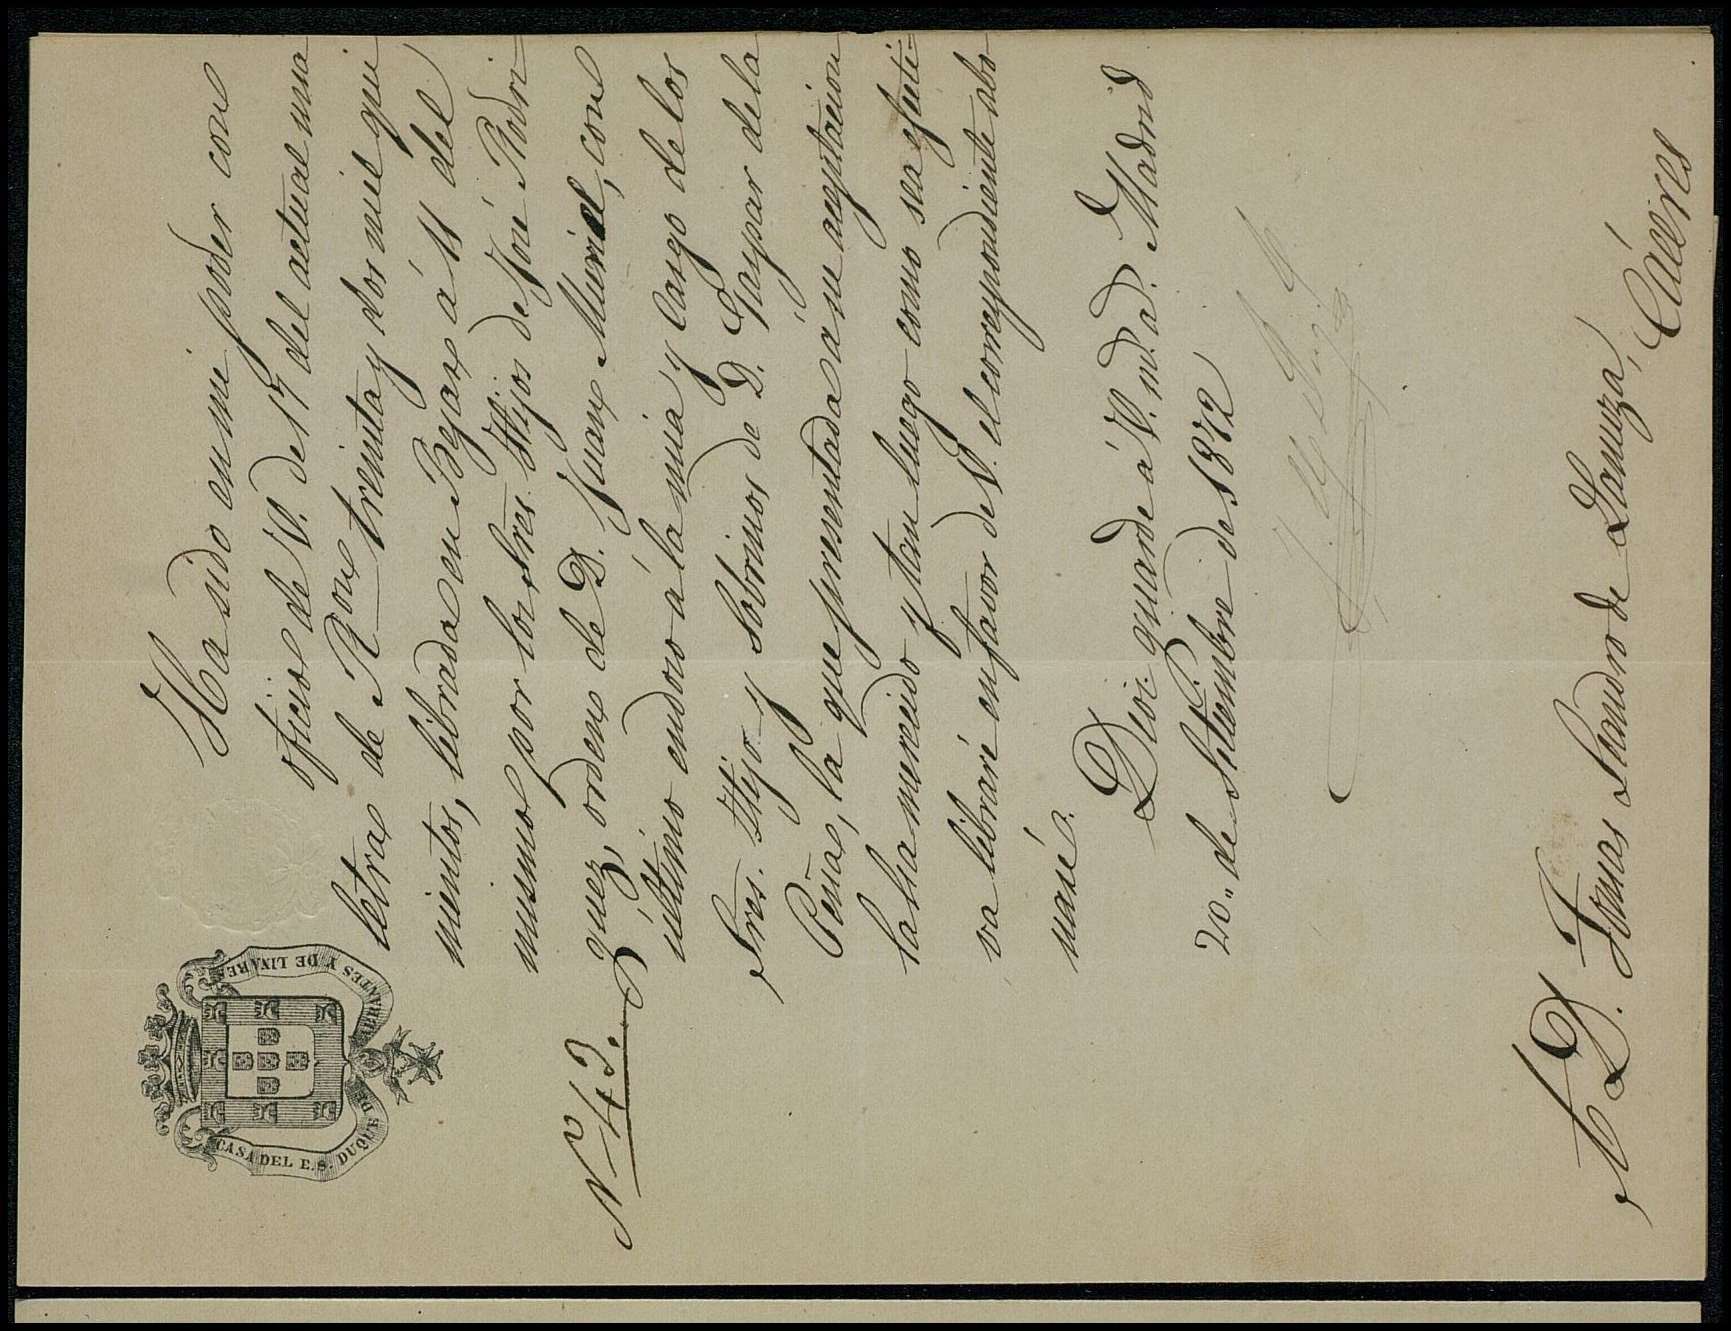 CASA DEL E. S. DUQUE DE ABRANTES Y DE LINARES
Nº 43.
Ha sido en mi poder con
oficio de V. de 17 del actual una
letra de Rvon treinta y dos mil qui
nientos, librada en Bejar á 11 del
mismo por los Sres. Hijos de José Rodri-
guez, orden de D. Juan Muriel, con
ultimo endoso á la mia y cargo de los
Sres. Hijo y Sobrinos de D. Gaspar de la
Peña, la que presentada á su aceptacion
la ha merecido y tan luego como sea efecti-
va libraré en favor de V. el correspondiente abo
naré.
Dios guarde á V. m.s a.s Madrid
20 de Setiembre de 1872
A D. Tomas Leandro de Lanuza, Cáceres